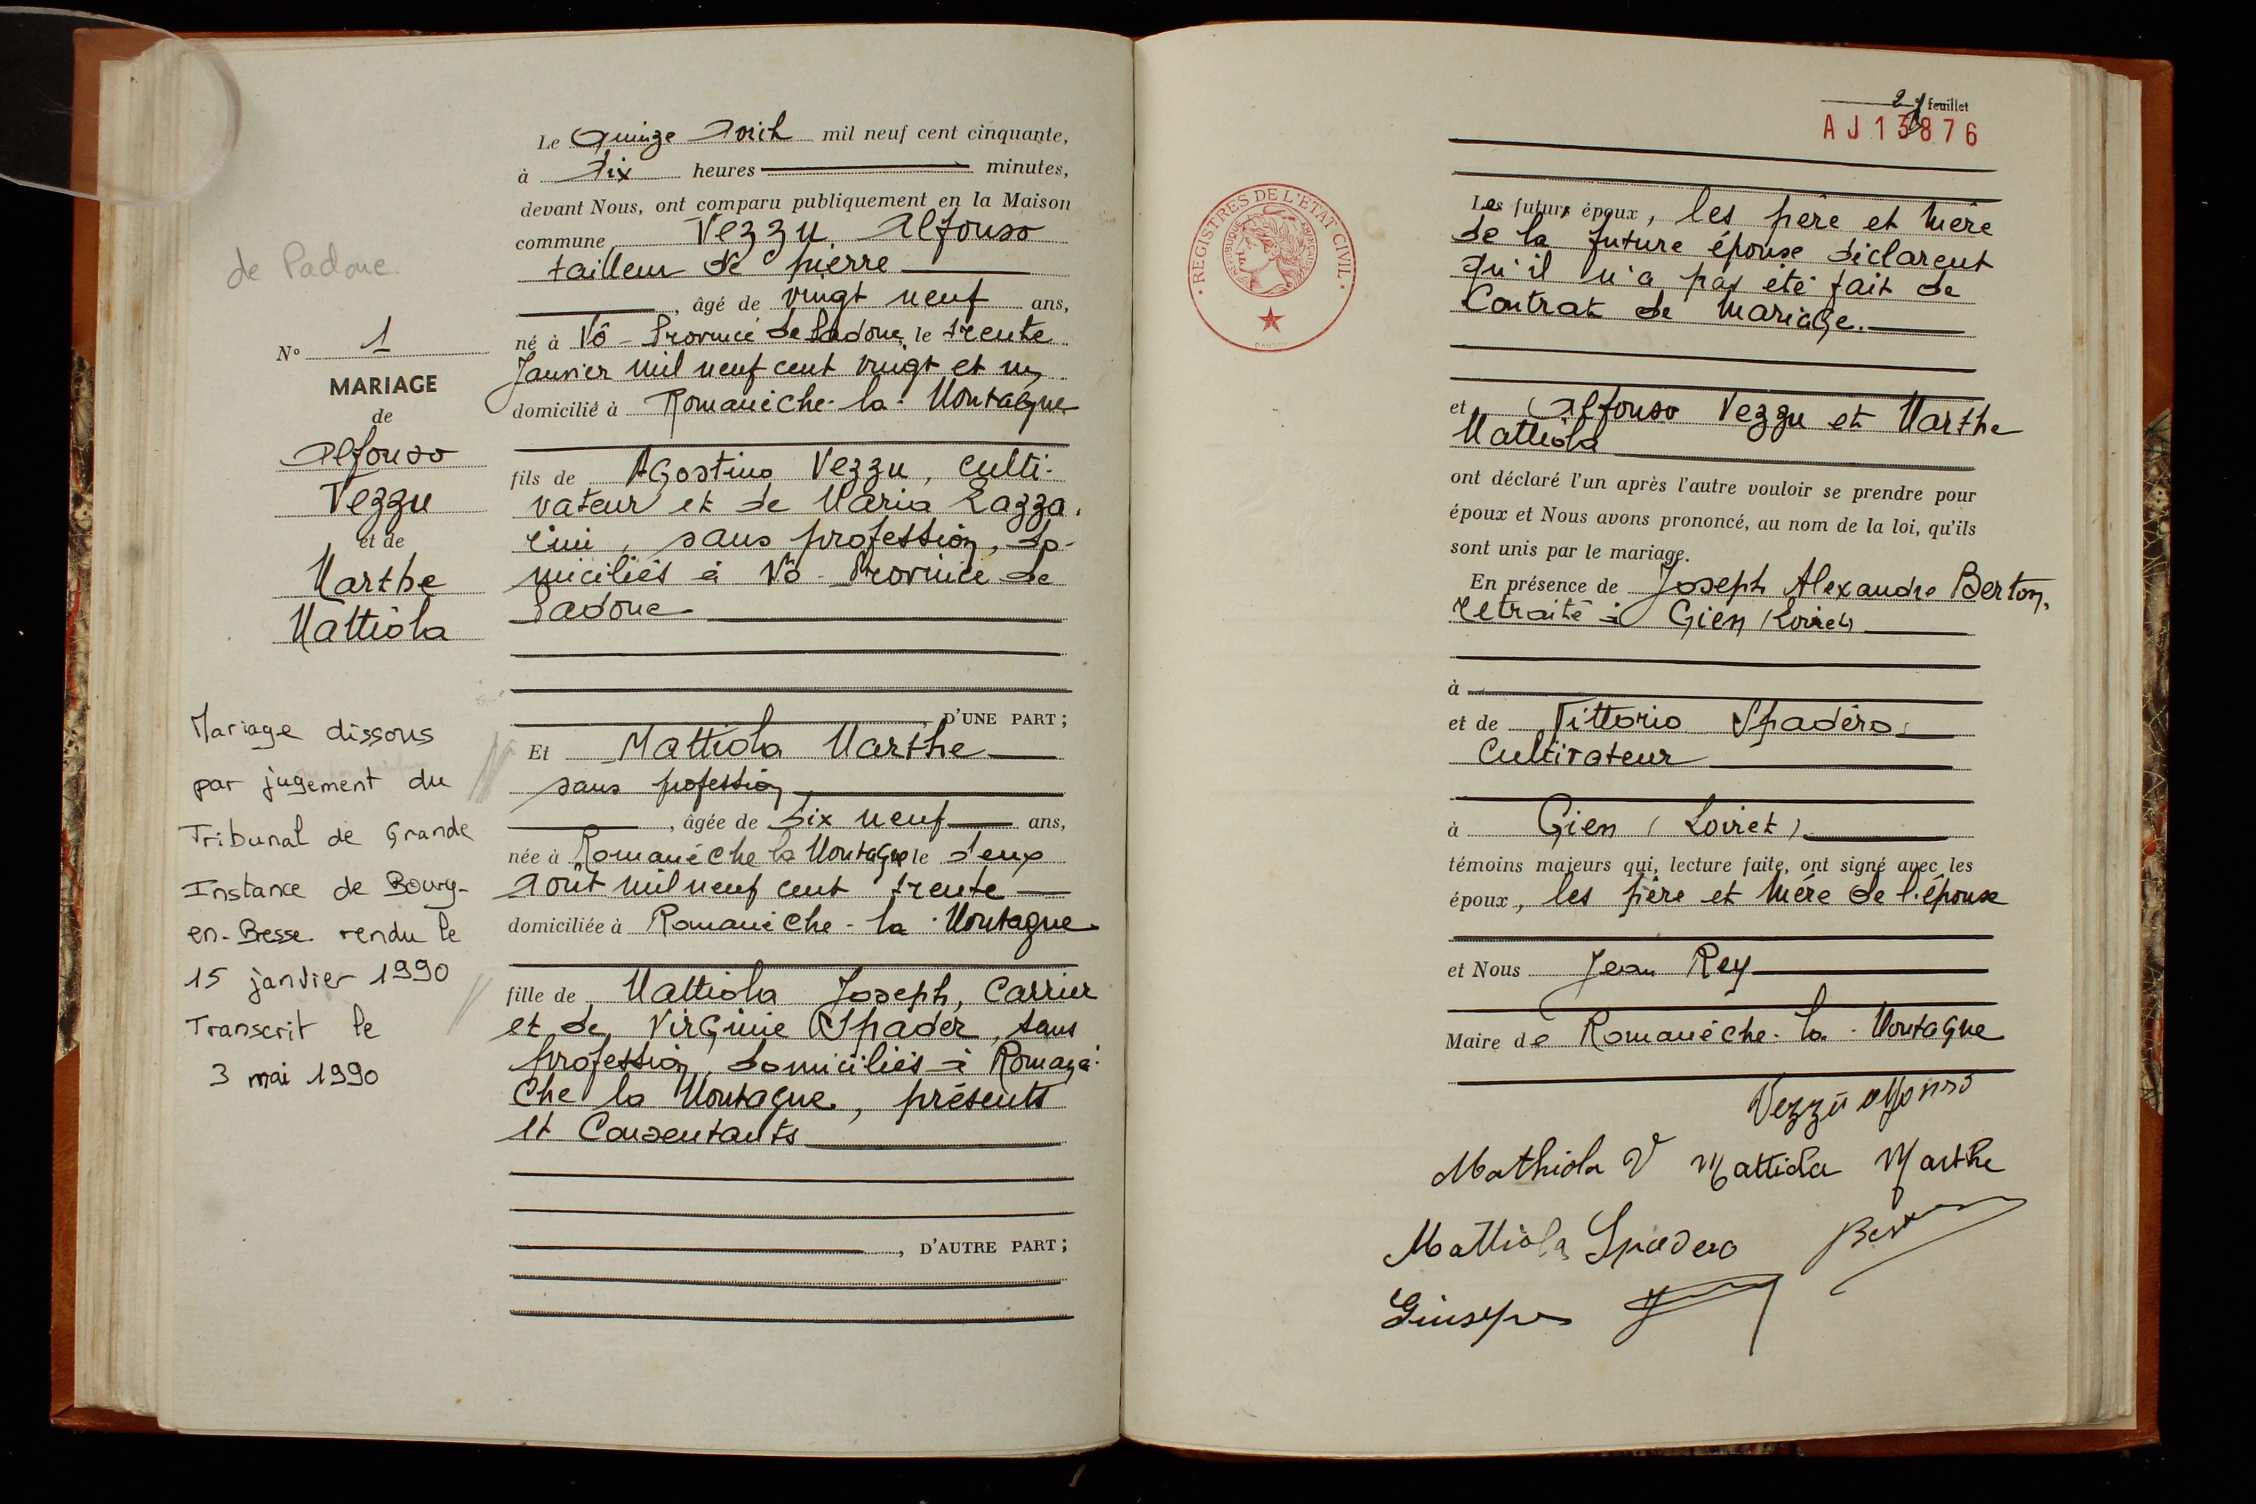 de Padoue.
N° 1
MARIAGE
de
Alfonso
Vezzu
et de
Marthe
Mattiola
Mariage dissous
par jugement du
Tribunal de Grande
Instance de Bourg-
en-Bresse rendu le
15 janvier 1990
Transcrit le
3 mai 1990
Le Quinze Avril mil neuf cent cinquante,
à dix heures minutes,
devant Nous, ont comparu publiquement en la Maison
commune Vezzu Alfonso
tailleur de pierre
, âgé de vingt neuf ans,
né à Vô - Province de Padoue, le trente
Janvier mil neuf cent vingt et un
domicilié à Romanèche-la-Montagne
fils de Agostino Vezzu, culti-
vateur et de Maria Lazza-
rini, sans profession, do-
miciliés à Vô - Province de
Padoue
D'UNE PART ;
Et Mattiola Marthe
sans profession
, âgée de dix neuf ans,
née à Romanèche la Montagne le deux
Août mil neuf cent trente
domiciliée à Romanèche-la-Montagne
fille de Mattiola Joseph, Carrier
et de Virginie Spader, sans
profession, domiciliés à Romanè-
che la Montagne, présents
et Consentants
, D'AUTRE PART ;
2 feuillet
AJ13876
· REGISTRES DE L'ETAT CIVIL ·
REPUBLIQUE FRANÇAISE
Les futurs époux, les père et mère
de la future épouse déclarent
qu'il n'a pas été fait de
Contrat de Mariage.
et Alfonso Vezzu et Marthe
Mattiola
ont déclaré l'un après l'autre vouloir se prendre pour
époux et Nous avons prononcé, au nom de la loi, qu'ils
sont unis par le mariage.
En présence de Joseph Alexandre Berton,
retraité à Gien (Loiret)
à
et de Vittorio Spadéro,
Cultivateur
à Gien (Loiret)
témoins majeurs qui, lecture faite, ont signé avec les
époux, les père et mère de l'épouse
et Nous Jean Rey
Maire de Romanèche-la-Montagne
Vezzù alfonso
Mathiola V Mattiola Marthe
Mattiola Spadero